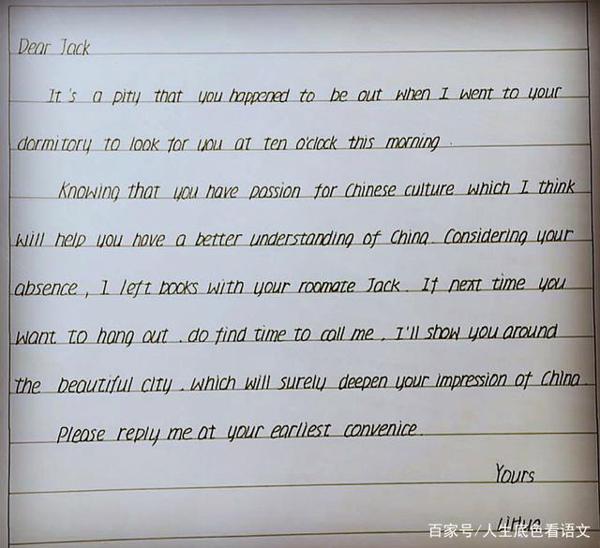 Dear Jack
It's a pity that you happened to be out when I went to your
dormitory to look for you at ten o'clock this morning.
Knowing that you have passion for Chinese culture which I think
will help you have a better understanding of China. Considering your
absence, I left books with your roomate Jack. If next time you
want to hang out. do find time to call me, I'll show you around
the beautiful city. which will surely deepen your impression of China.
Please reply me at your earliest convenice.
Yours
LiHua
百家号/人生底色看语文